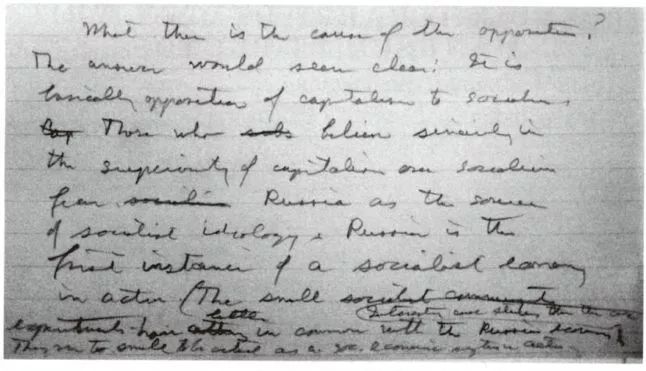 What then is the cause of the opposition?
The answer would seem clear: It is
basically opposition of capitalism to socialism.
Cap Those who believe sincerely in
the superiority of capitalism over socialism
fear socialism Russia as the source
of socialist ideology. Russia is the
first instance of a socialist economy
in action. (The small socialist community
experiments have little in common with the Russian economy
They are too small to be as a economic system in action